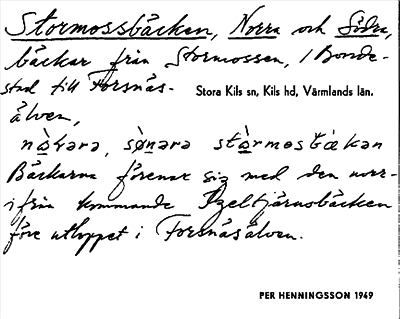 Stormossbäcken, Norra och Södra,
bäckar från Stormossen, i Bonde-
stad till Forsnäs- Stora Kils sn, Kils hd, Värmlands län.
älven,
nò̱rərə, sø̱̀nərə stò̱rmosbækən
Bäckarna förenar sig med den norr-
ifrån kommande Igeltjärnsbäcken
före utloppet i Forsnäsälven.
PER HENNINGSSON 1949